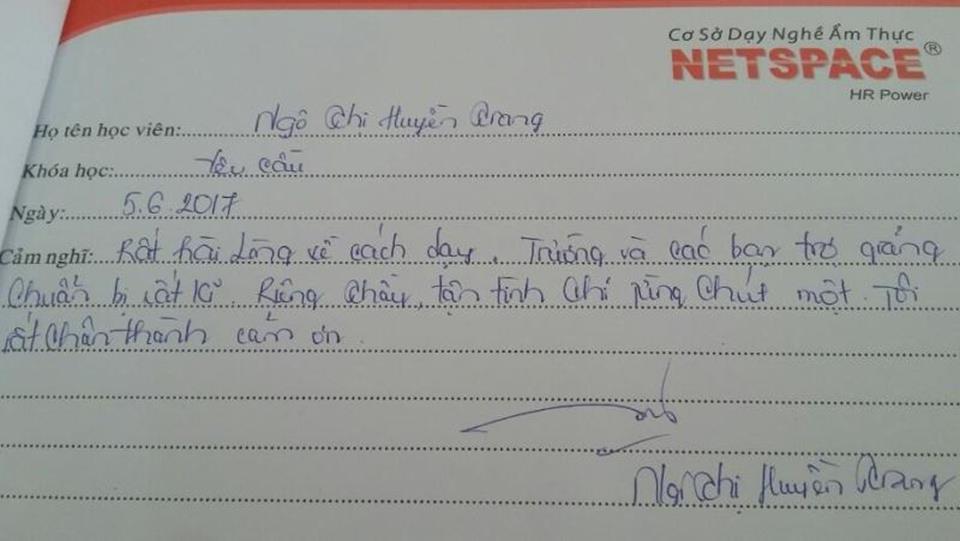 Cơ Sở Dạy Nghề Ẩm Thực
NETSPACE®
HR Power
Họ tên học viên: Ngô Thị Huyền Trang
Khóa học: Yêu cầu
Ngày: 5.6.2017
Cảm nghĩ: Rất hài lòng về cách dạy. Trường và các bạn trợ giảng
Chuẩn bị rất kĩ. Riêng Thầy, tận tình Chỉ từng Chút một. Tôi
rất Chân thành cảm ơn.
Ngô Thị Huyền Trang